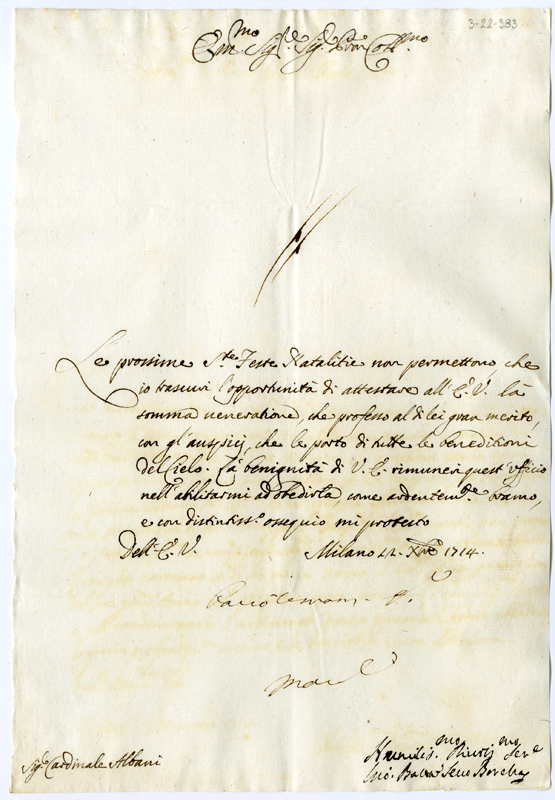 3-22-383
Em.mo Sig.re Sig.r Pron Coll.mo
Le prossime S.te Feste Natalitie non permettono, che
io trascuri l'opportunità di attestare all'E. V. la
somma ueneratione, che professo al di lei gran merito,
con gl'auspicij, che le porto di tutte le beneditioni
del Cielo. La benignità di V. E. rimuneri quest'vfficio
nell'abilitarmi ad obedirla, come ardentem.te bramo,
e con distintiss.o ossequio mi protesto
Dell'E. V. Milano 22. Xbre 1714.
Sig.r Cardinale Albani
Humilis.mo Diuotis.mo Ser.e